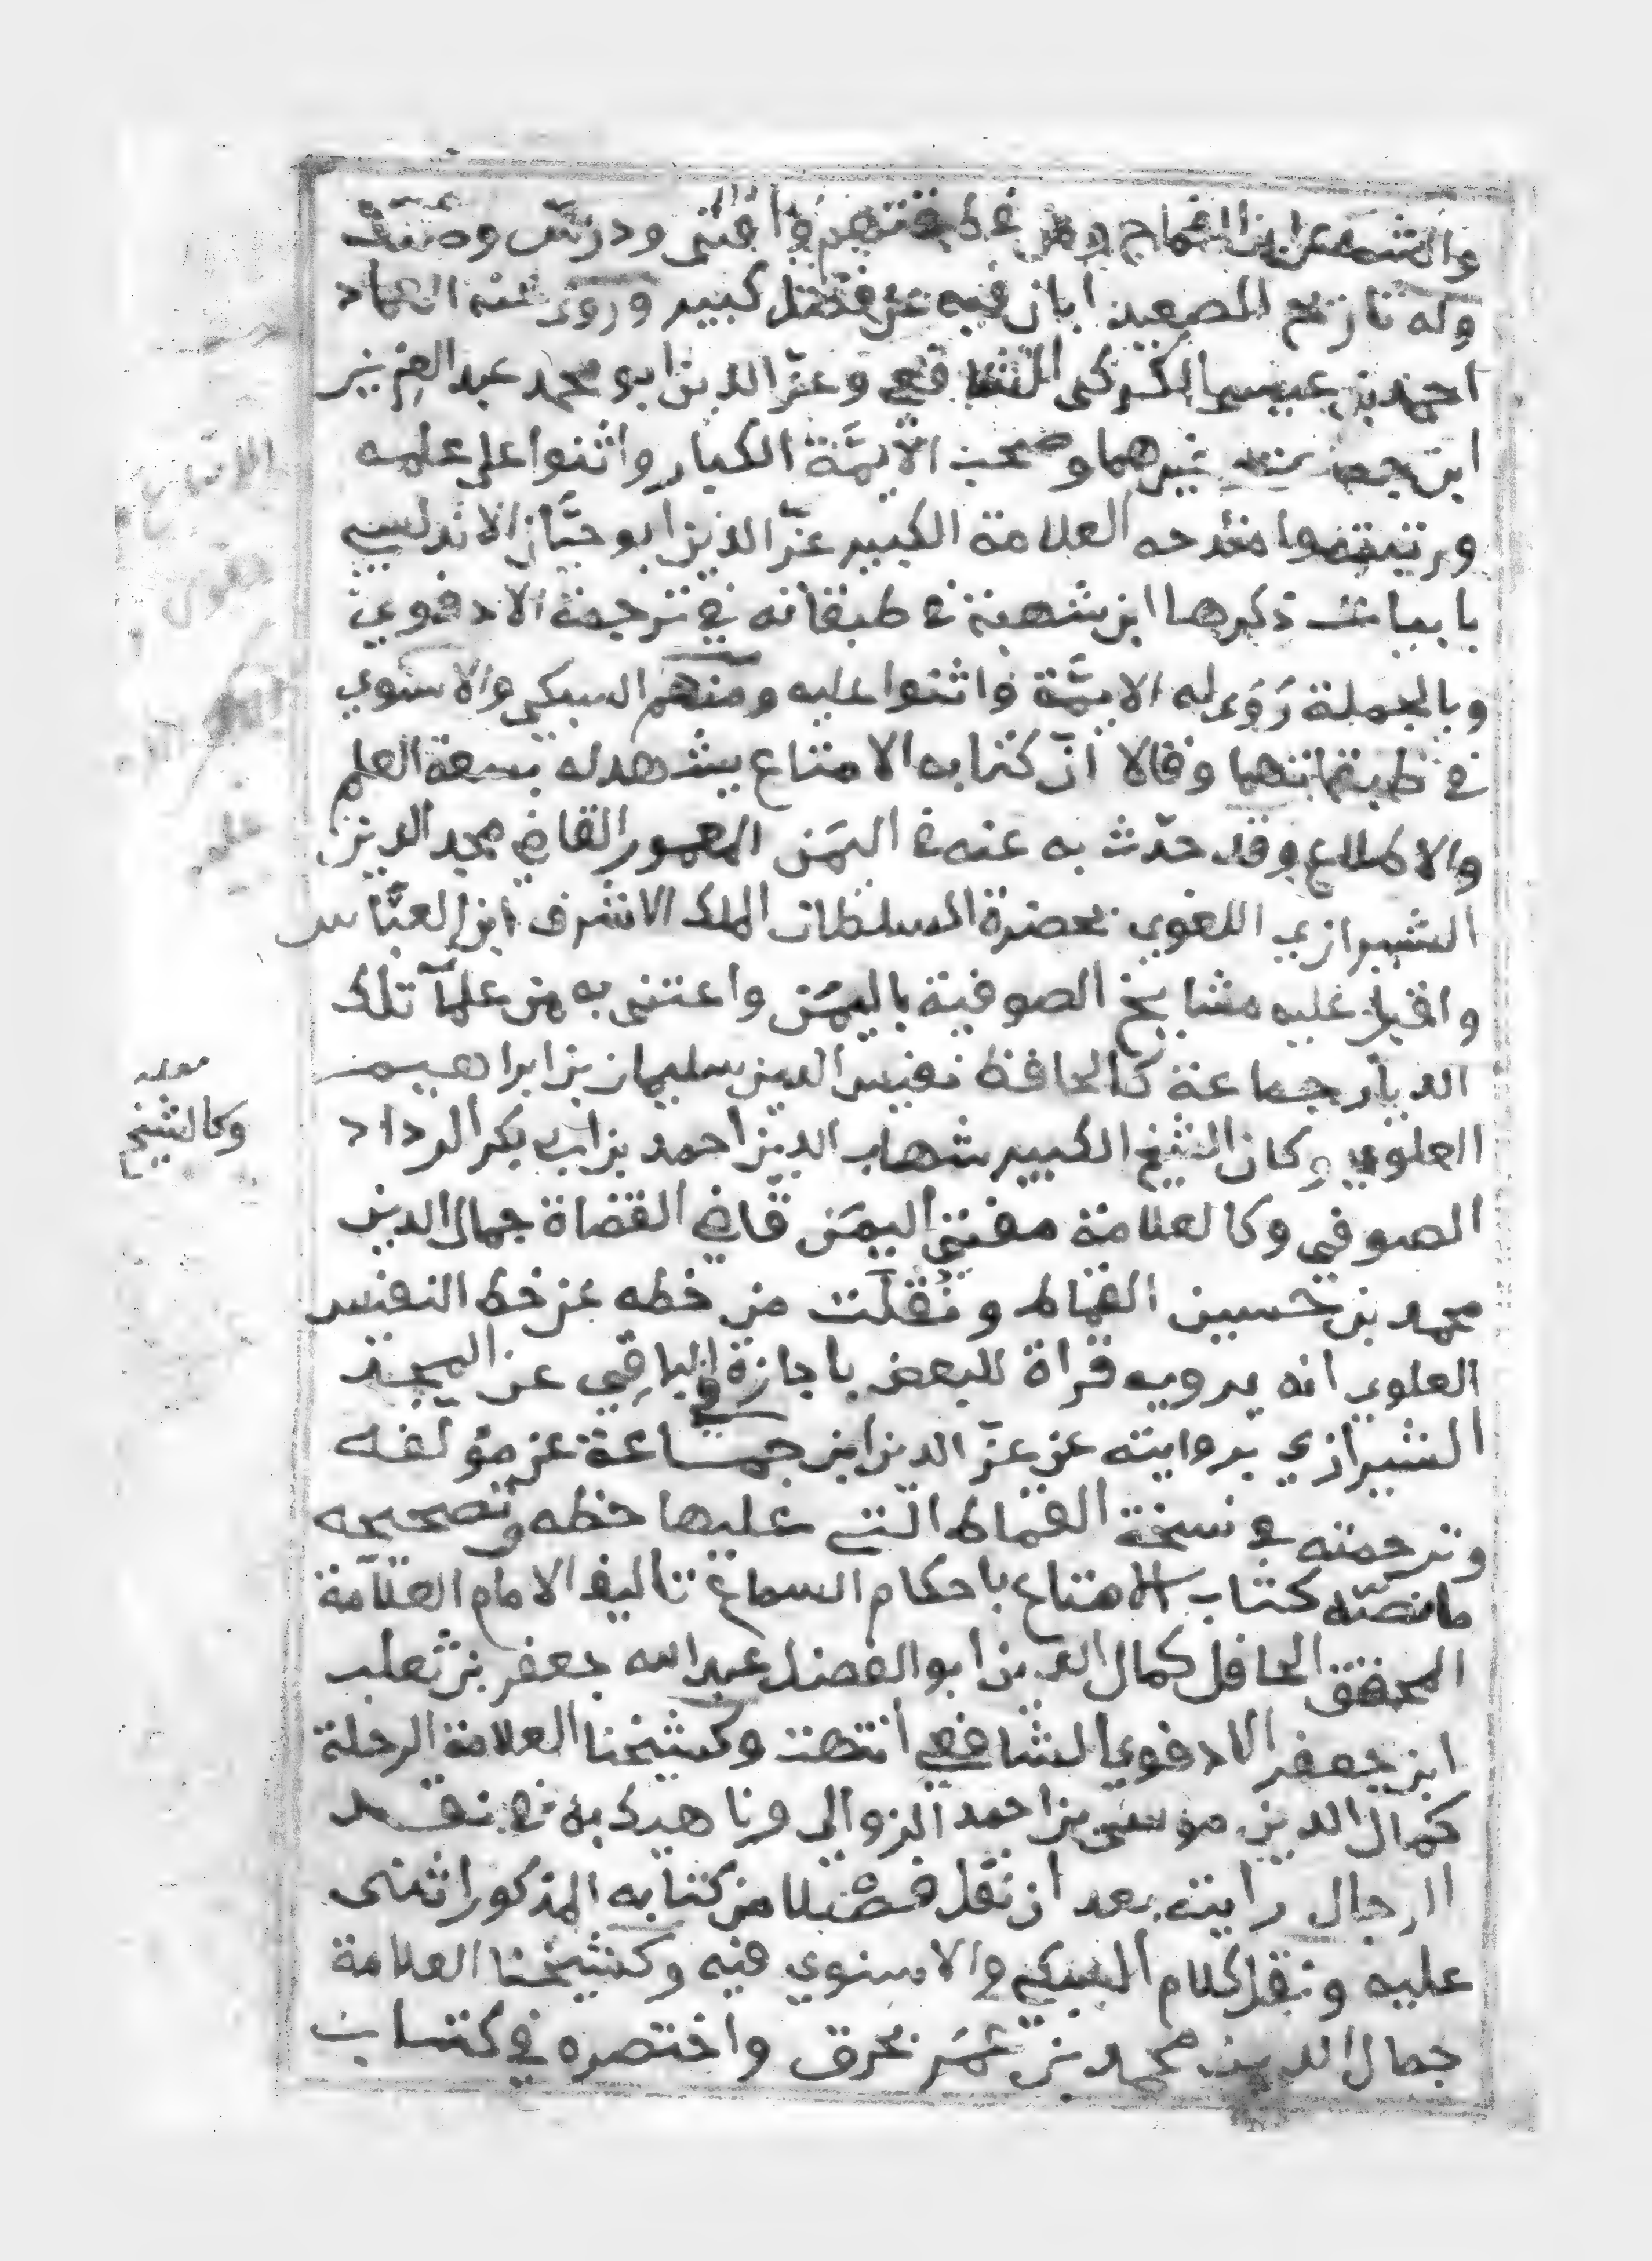 وافتى ودرس وصنف
وله تاريخ الصعيد ابان فيه عن فضل كبير وروى عنه العماد
احمد بن عيسى الكركى الشافعي وعز الدين ابو محمد عبد العزيز
ابن جماعة وغيرهما وصحب الأيمَّة الكبار واثنوا على علمه
ومدحه العلامة الكبير عزّ الدين ابو حيَّان الاندلسي
بابيات ذكرها ابن شهبة في طبقاته في ترجمة الادفوي
وبالجملة رَوَى له الايمَّة واثنوا عليه ومنهم السبكي والاسنوي
في طبقاتهما وقالا انّ كتابه الامتاع يشهد له بسعة العلم
والاطلاع وقد حدّث به عنه في اليمَن المعمور القاضي مجد الدين
الشيرازي اللغوي بحضرة السلطان الملك الاشرف ابن العبَّاس
واقبل عليه مشايخ الصوفية باليمَن واعتنى به من علمآ تلك
الديار جماعة كالحافظ نفيس الدين سليمان بن ابراهيم
العلوي وكان الشيخ الكبير شهاب الدين احمد بن ابي بكر الرداد
وكالشيخ
الصوفي وكالعلامة مفتي اليمَن قاضي القضاة جمال الدين
محمد بن حسين القماط ونُقلَت من خطه عن خط النفيس
العلوي انه يرويه قراة للبعض باجازة في الباقي عن المجد
الشيرازي بروايته عن عزّ الدين ابن جماعة عن مؤلفه
وترجمته في نسخة القماط الّتي عليها خطه وتصحيحه
ما نصّه كتاب الامتاع باحكام السماع تاليف الامام العلّامة
المحقق الحافل كمال الدين ابو الفضل عبد الله جعفر بن ثعلب
ابن جعفر الادفوي الشافعي انتهت وكشيخنا العلامة الرحلة
كمال الدين موسى بن احمد الزوالي وناهيك به في نقد
الرجال رايته بعد ان نقل فصْلا من كتابه المذكور اثنى
عليه ونقل كلام السبكي والاسنوي فيه وكشيخنا العلامة
جمال الدين محمد بن عُمَر بحرق واختصره في كتاب